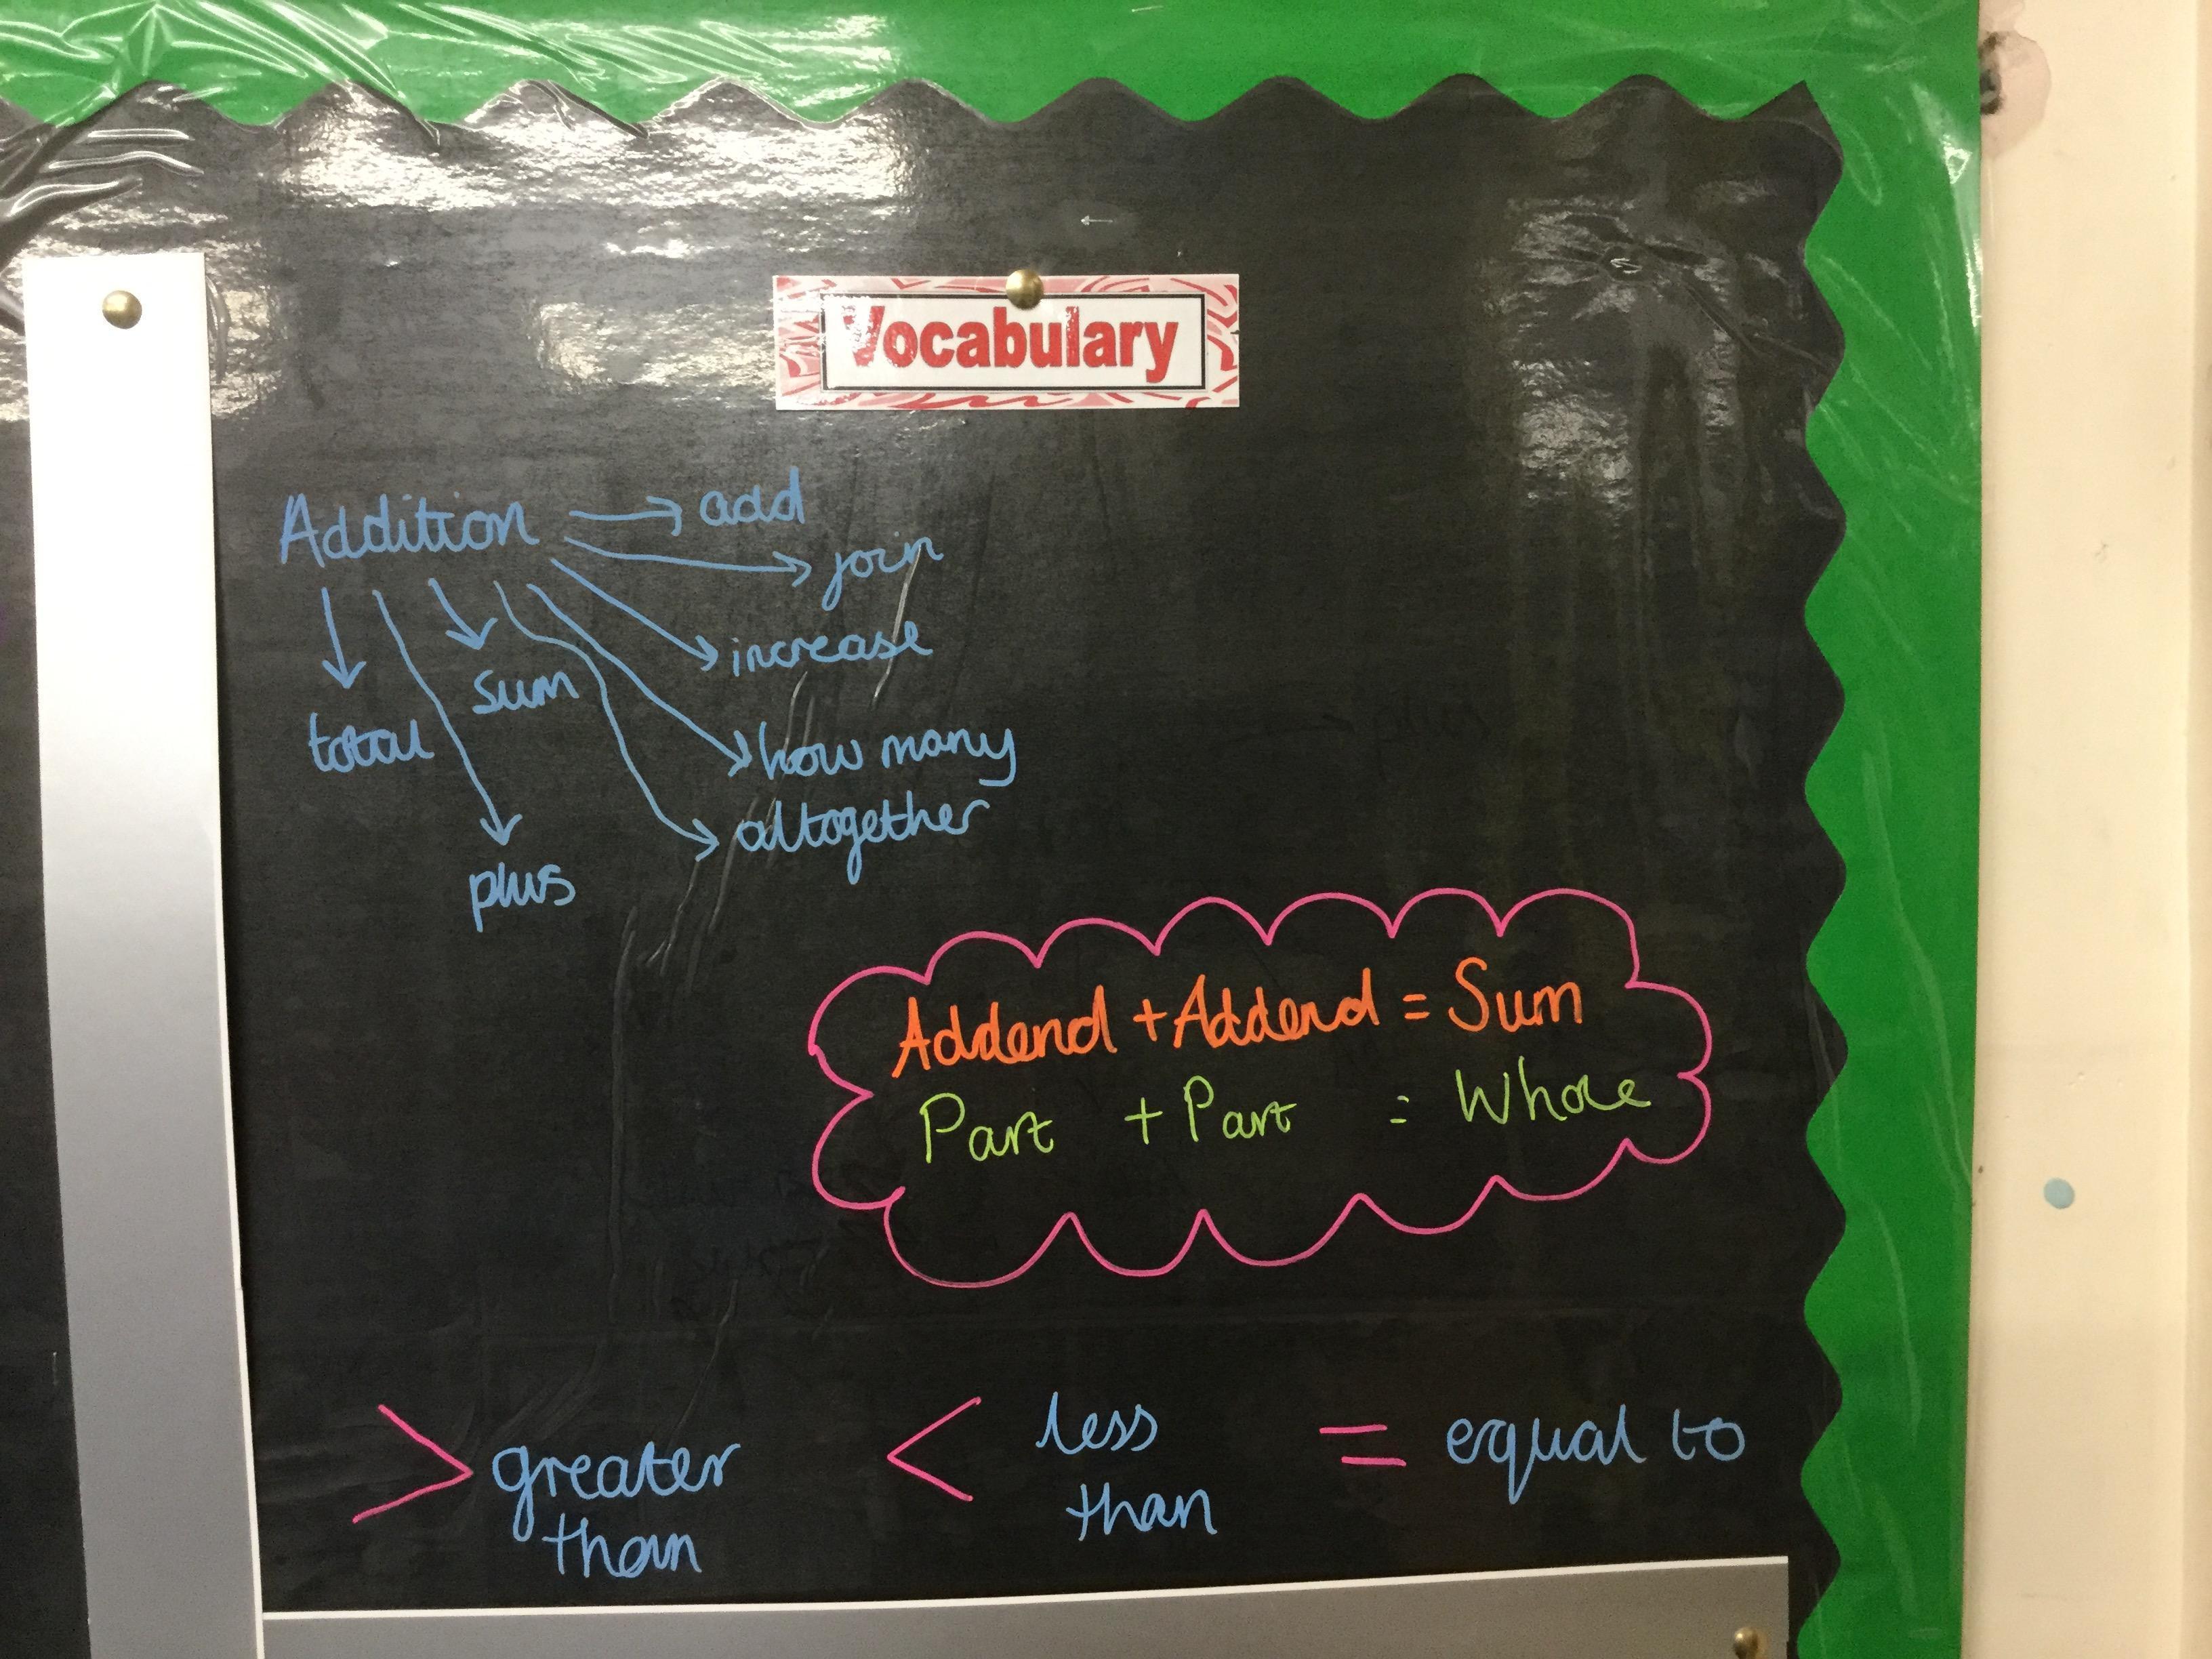 Vocabulary
Addition → add
→ join
→ increase
→ how many
→ altogether
→ sum
→ total
→ plus
Addend + Addend = Sum
Part + Part = Whole
> greater than
< less than
= equal to